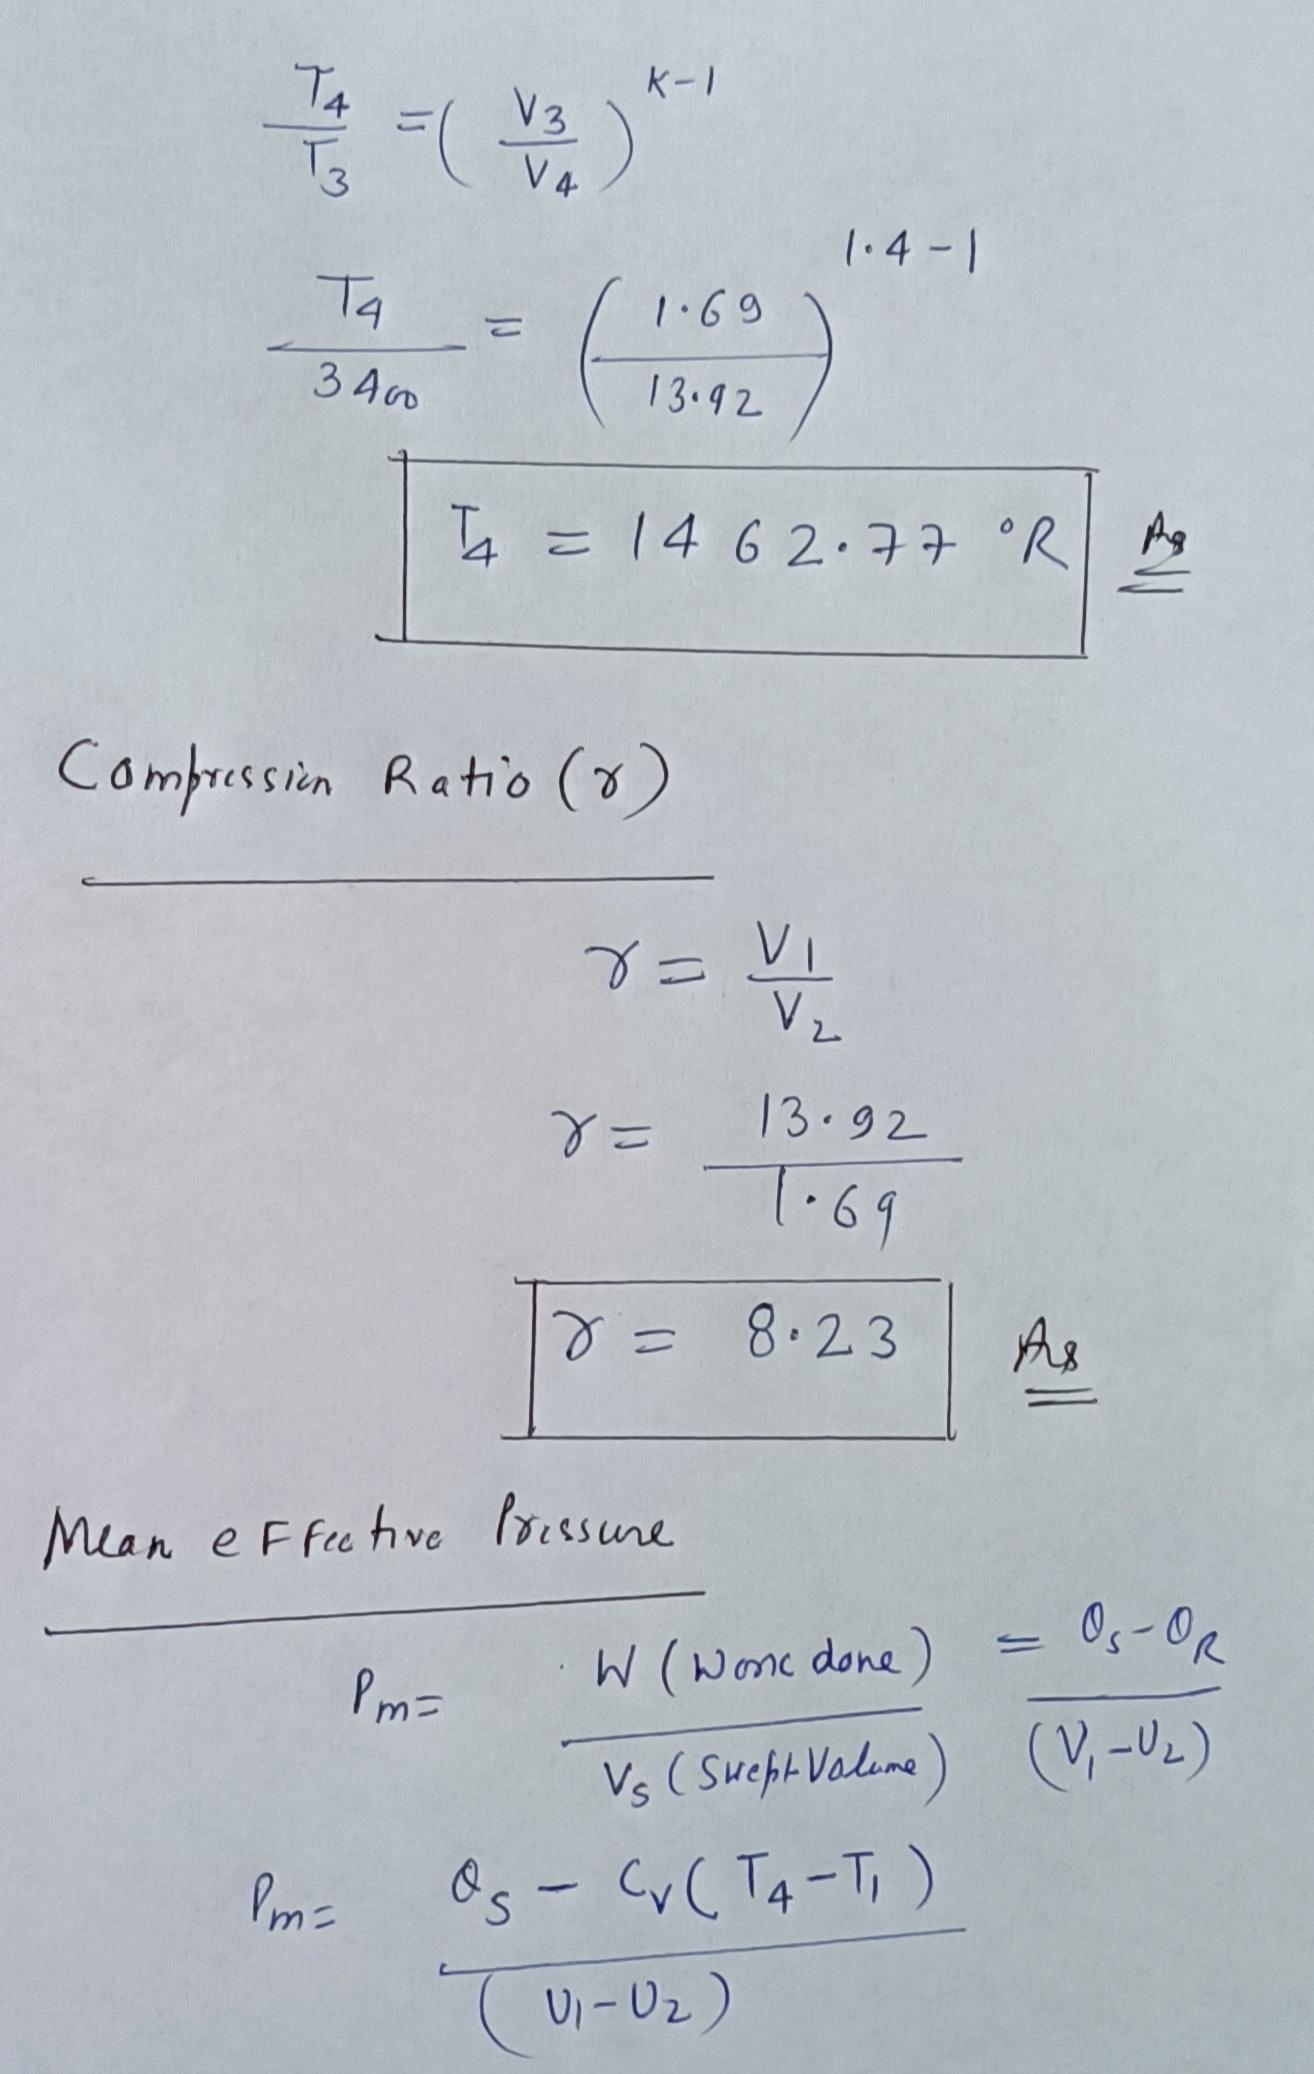 T4/T3 = (V3/V4)^K-1
T4/3400 = (1.69/13.92)^1.4-1
T4 = 1462.77 °R Ans
Compression Ratio (r)
r = V1/V2
r = 13.92/1.69
r = 8.23 Ans
Mean effective Pressure
Pm = W (Work done)/Vs (Swept Volume) = Qs-QR/(V1-V2)
Pm = Qs - Cv(T4-T1)/(V1-V2)